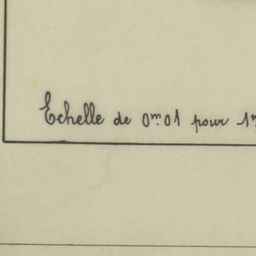 Echelle de 0m.01 pour 1m